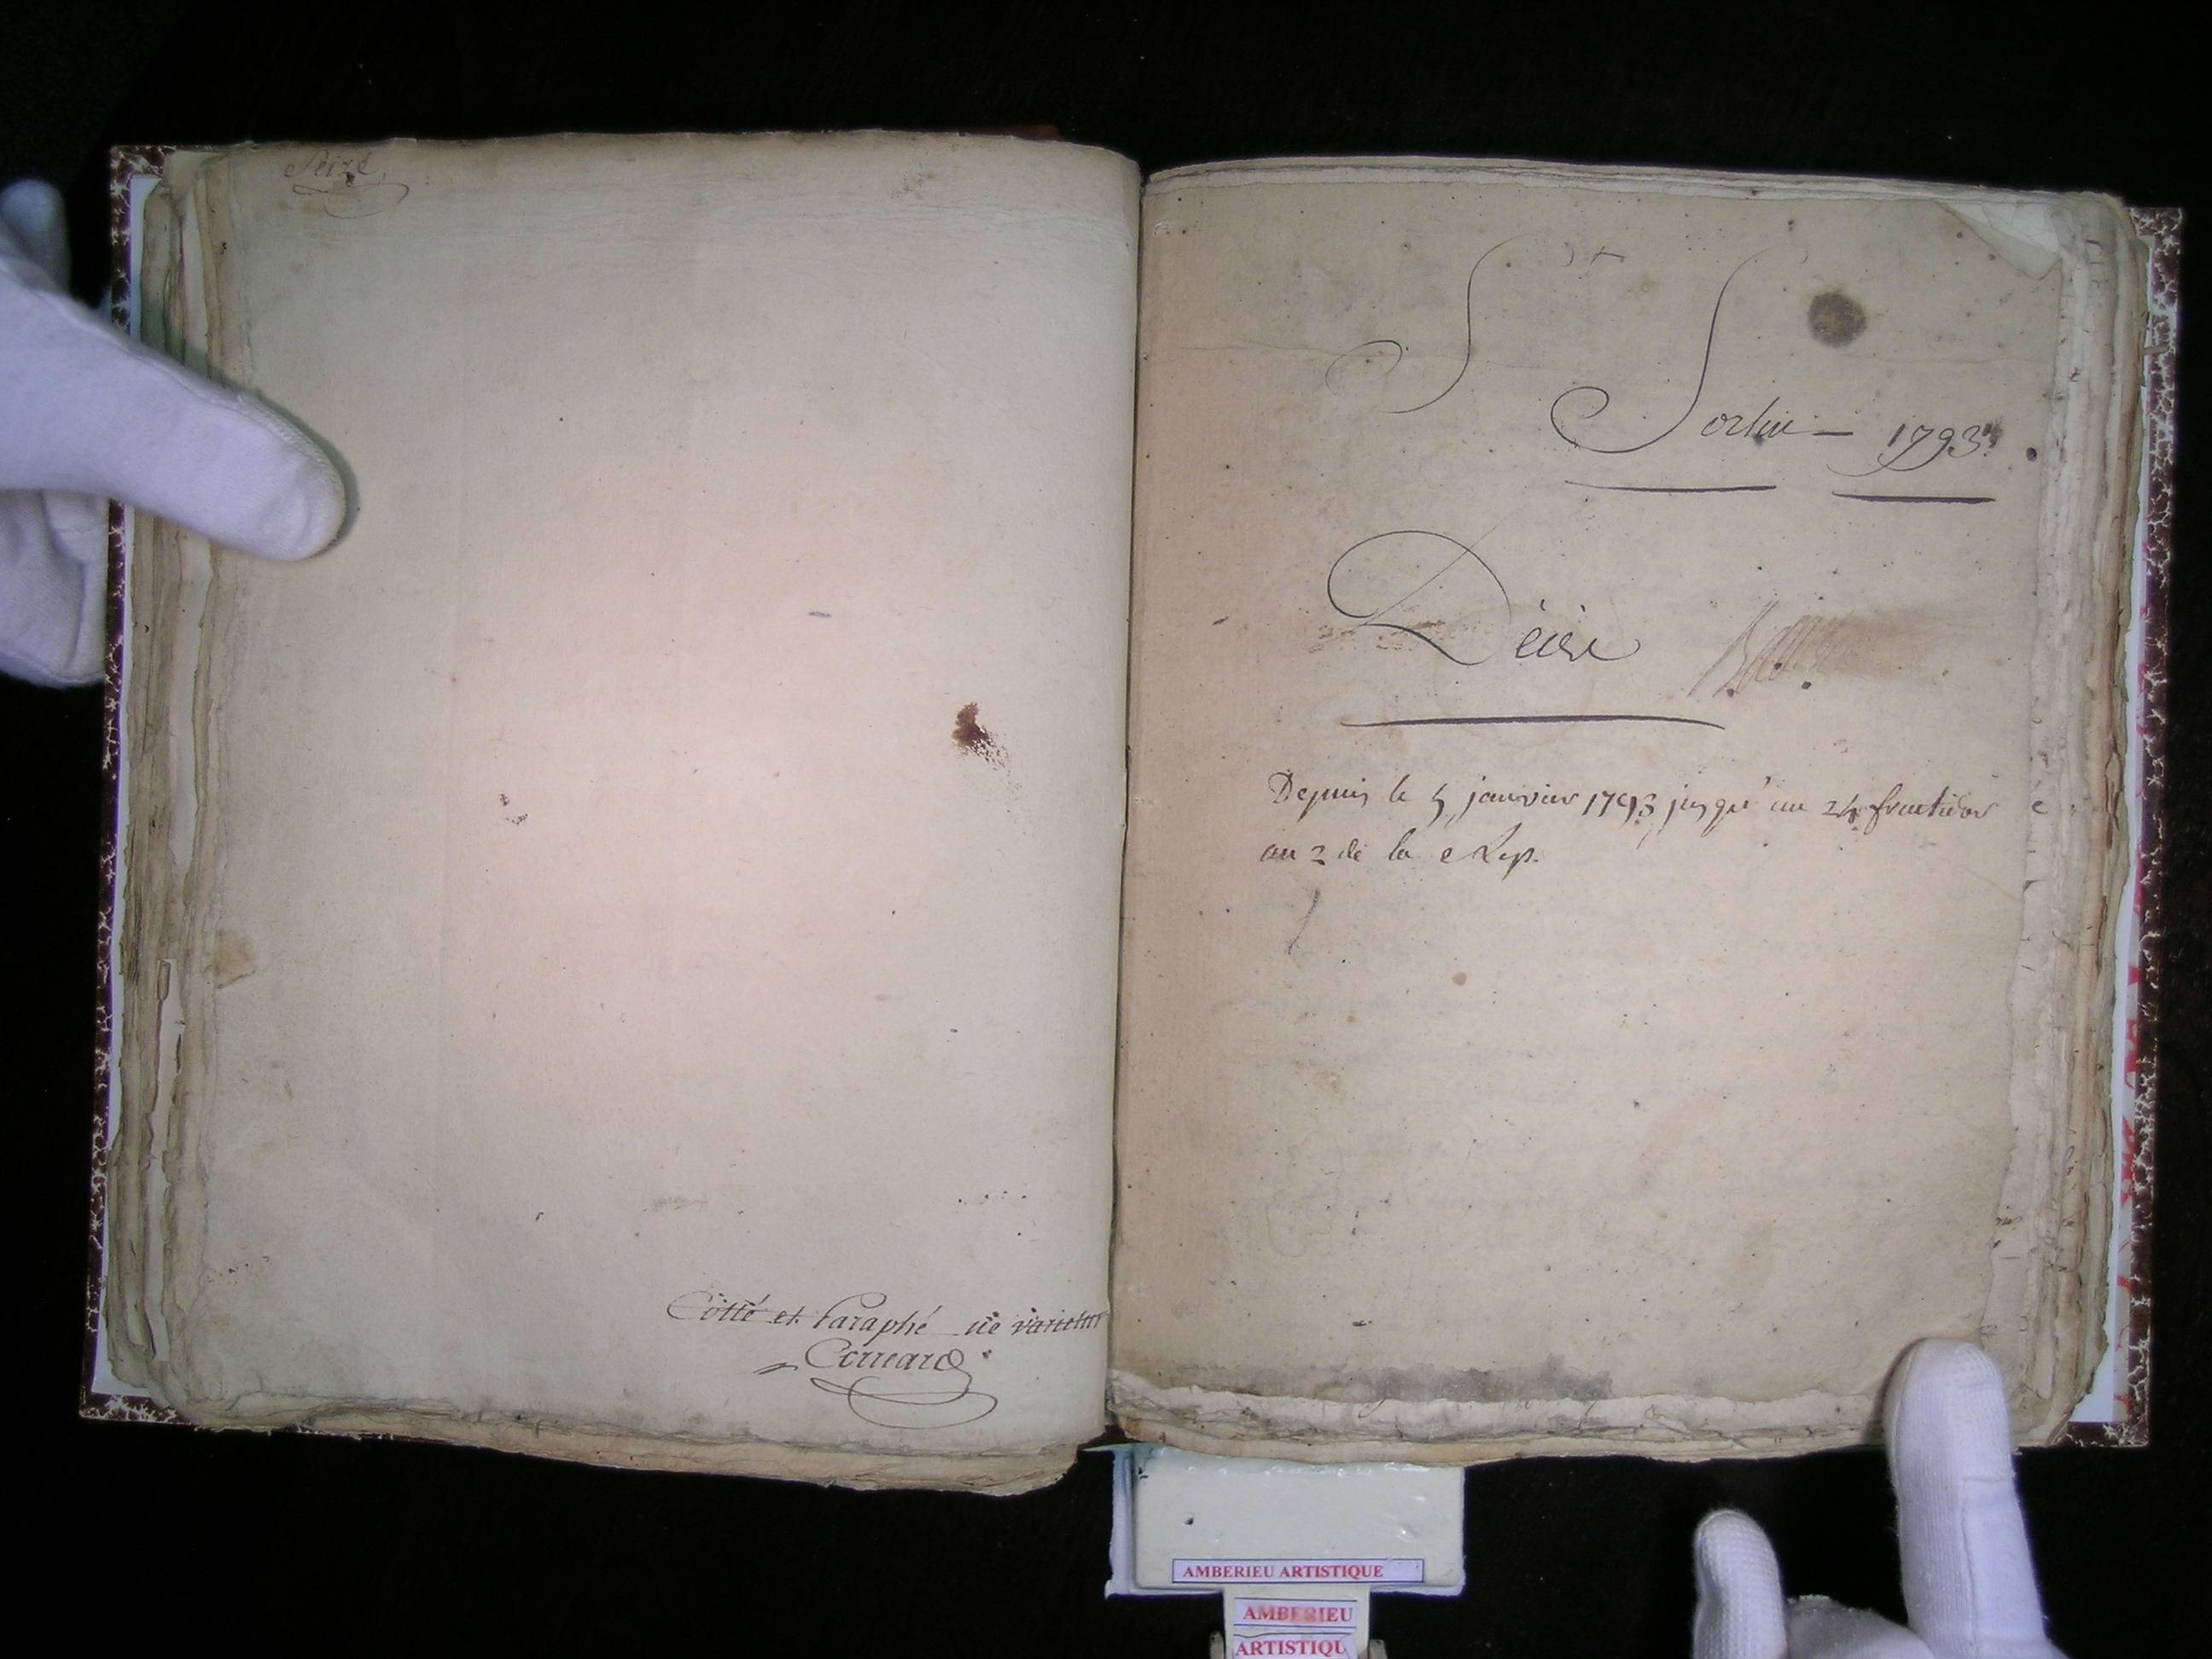 Seize
Cotté et Paraphé ne varietur
Cornard
St
Sorlin — 1793
Décès
Depuis le 5 janvier 1793 jusqu'au 24 fructidor
an 2 de la Rep.
AMBERIEU ARTISTIQUE
AMBERIEU
ARTISTIQU